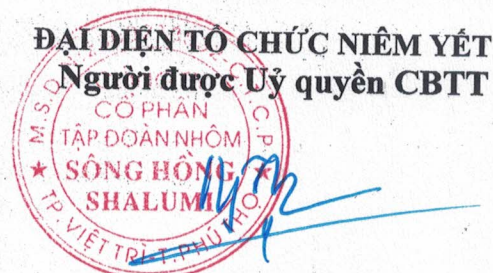 ĐẠI DIỆN TỔ CHỨC NIÊM YẾT
Người được Uỷ quyền CBTT
CỔ PHẦN
TẬP ĐOÀN NHÔM
SÔNG HỒNG
SHALUMI
TP. VIỆT TRÌ - T. PHÚ THỌ